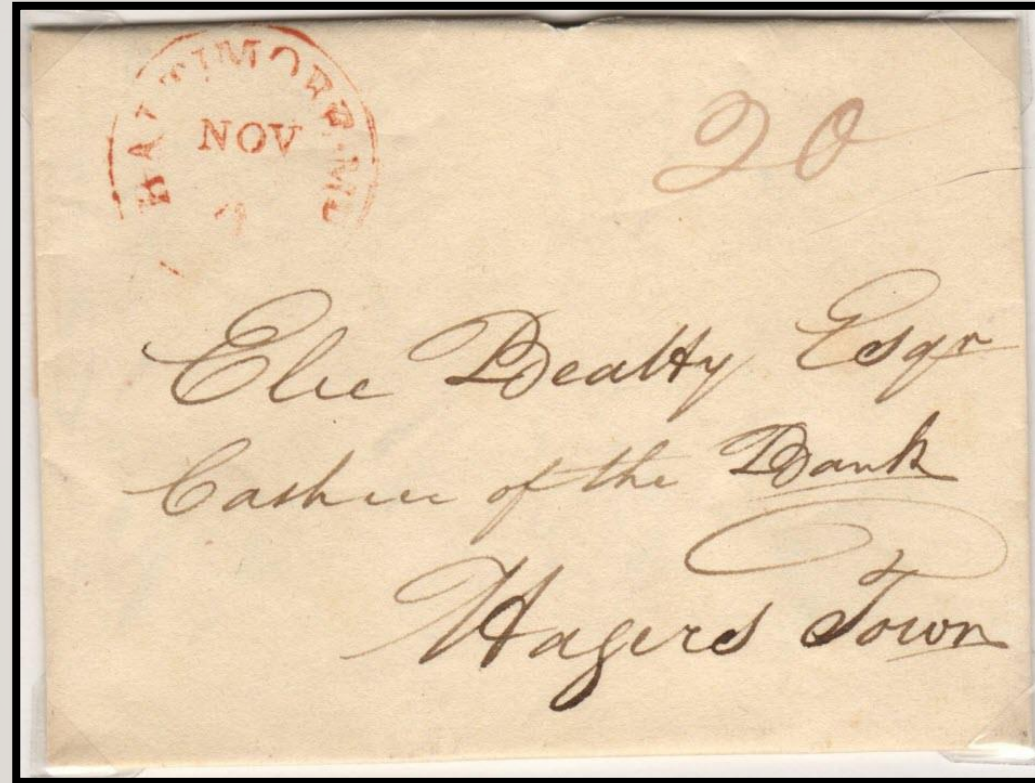 BALTIMORE.MD
NOV
20
Elie Beatty Esqr
Cashier of the Bank
Hagers Town